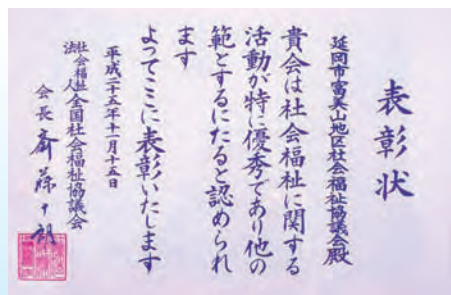 表彰状
延岡市富美山地区社会福祉協議会殿
貴会は社会福祉に関する
活動が特に優秀であり他の
範とするにたると認められ
ます
よってここに表彰いたします
平成二十五年十一月十五日
社会福祉法人全国社会福祉協議会
会長 斎藤十朗